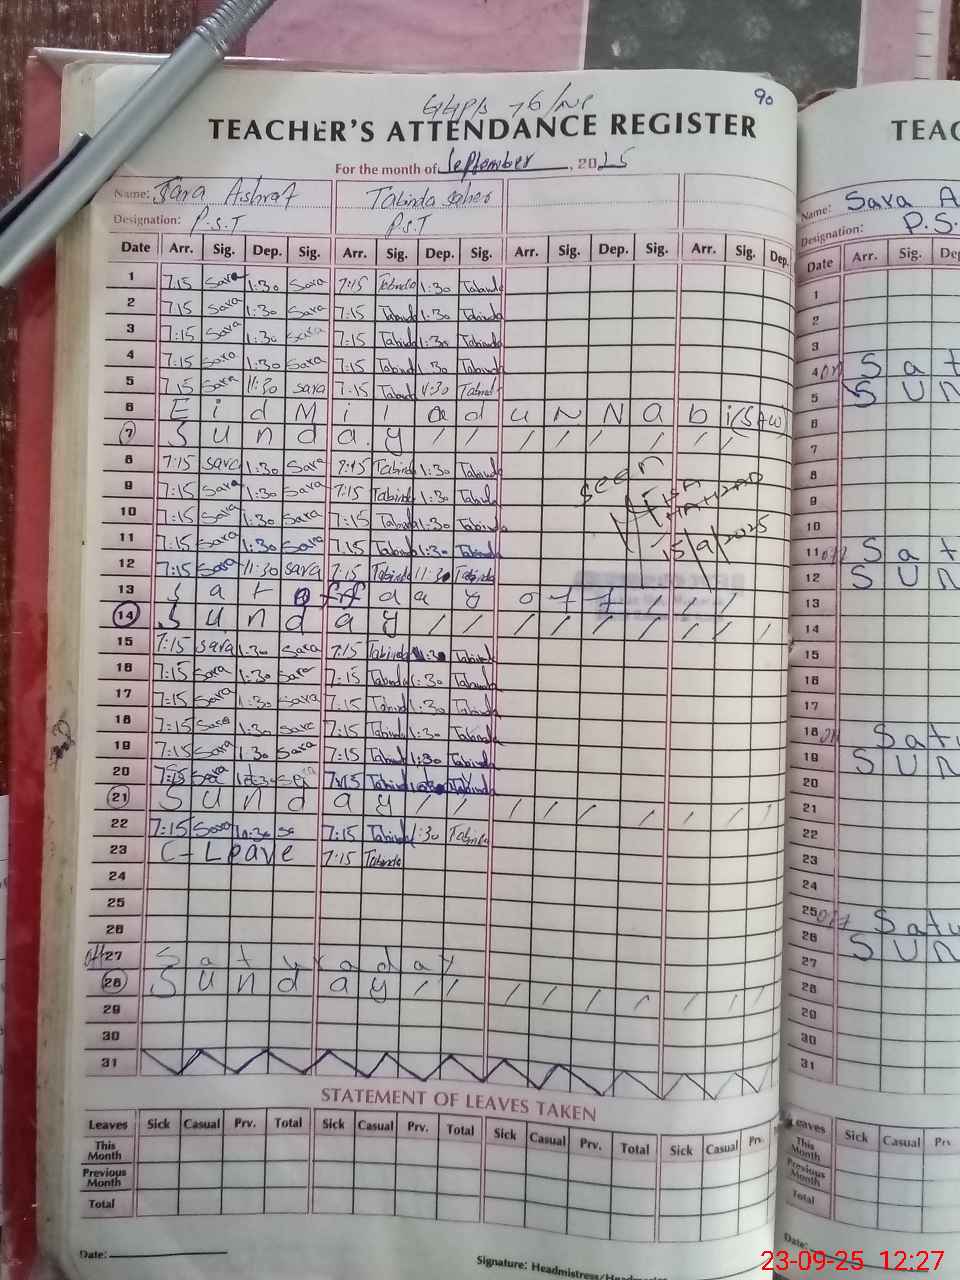 90
TEACHER'S ATTENDANCE REGISTER
For the month of September, 2025
Name: Sara Ashraf Tabinda
Designation: P.S.T P.S.T
Date Arr. Sig. Dep. Sig. Arr. Sig. Dep. Sig. Arr. Sig. Dep. Sig. Arr. Sig. Dep.
1 7:15 Sara 1:30 Sara 7:15 Tabinda 1:30 Tabinda
2 7:15 Sara 1:30 Sara 7:15 Tabinda 1:30 Tabinda
3 7:15 Sara 1:30 Sara 7:15 Tabinda 1:30 Tabinda
4 7:15 Sara 1:30 Sara 7:15 Tabinda 1:30 Tabinda
5 7:15 Sara 11:30 Sara 7:15 Tabinda 11:30 Tabinda
6 Eid Milad un Nabi (SAW)
7 Sunday / / / / / / / /
8 7:15 Sara 1:30 Sara 7:15 Tabinda 1:30 Tabinda
9 7:15 Sara 1:30 Sara 7:15 Tabinda 1:30 Tabinda
seen
10 7:15 Sara 1:30 Sara 7:15 Tabinda 1:30 Tabinda
11 7:15 Sara 1:30 Sara 7:15 Tabinda 1:30 Tabinda
15/9/2025
12 7:15 Sara 11:30 Sara 7:15 Tabinda 11:30 Tabinda
13 off day off / / /
14 Sunday / / / / / / / / /
15 7:15 Sara 1:30 Sara 7:15 Tabinda 1:30 Tabinda
16 7:15 Sara 1:30 Sara 7:15 Tabinda 1:30 Tabinda
17 7:15 Sara 1:30 Sara 7:15 Tabinda 1:30 Tabinda
18 7:15 Sara 1:30 Sara 7:15 Tabinda 1:30 Tabinda
19 7:15 Sara 1:30 Sara 7:15 Tabinda 1:30 Tabinda
20 7:15 7:15 Tabinda Tabinda
21 Sunday / / / / / / / /
22 7:15 Sara 7:15 Tabinda 1:30 Tabinda
23 C-Leave 7:15 Tabinda
24
25
26
off 27 Saturaday
28 Sunday / / / / / / / / /
29
30
31
STATEMENT OF LEAVES TAKEN
Leaves Sick Casual Prv. Total Sick Casual Prv. Total Sick Casual Prv. Total Sick Casual Prv.
This Month
Previous Month
Total
Date:
Signature: Headmistress/
TEAC
Name: Sara A
Designation: P.S.
Date Arr. Sig. Dep.
1
2
3
4 Sat
5 SUN
6
7
8
9
10
11 off Sat
12 SUN
13
14
15
16
17
18 Satu
19 SUN
20
21
22
23
24
25 off Satu
26 SUN
27
28
29
30
31
Leaves Sick Casual
This Month
Previous Month
Total
Date:
23-09-25 12:27